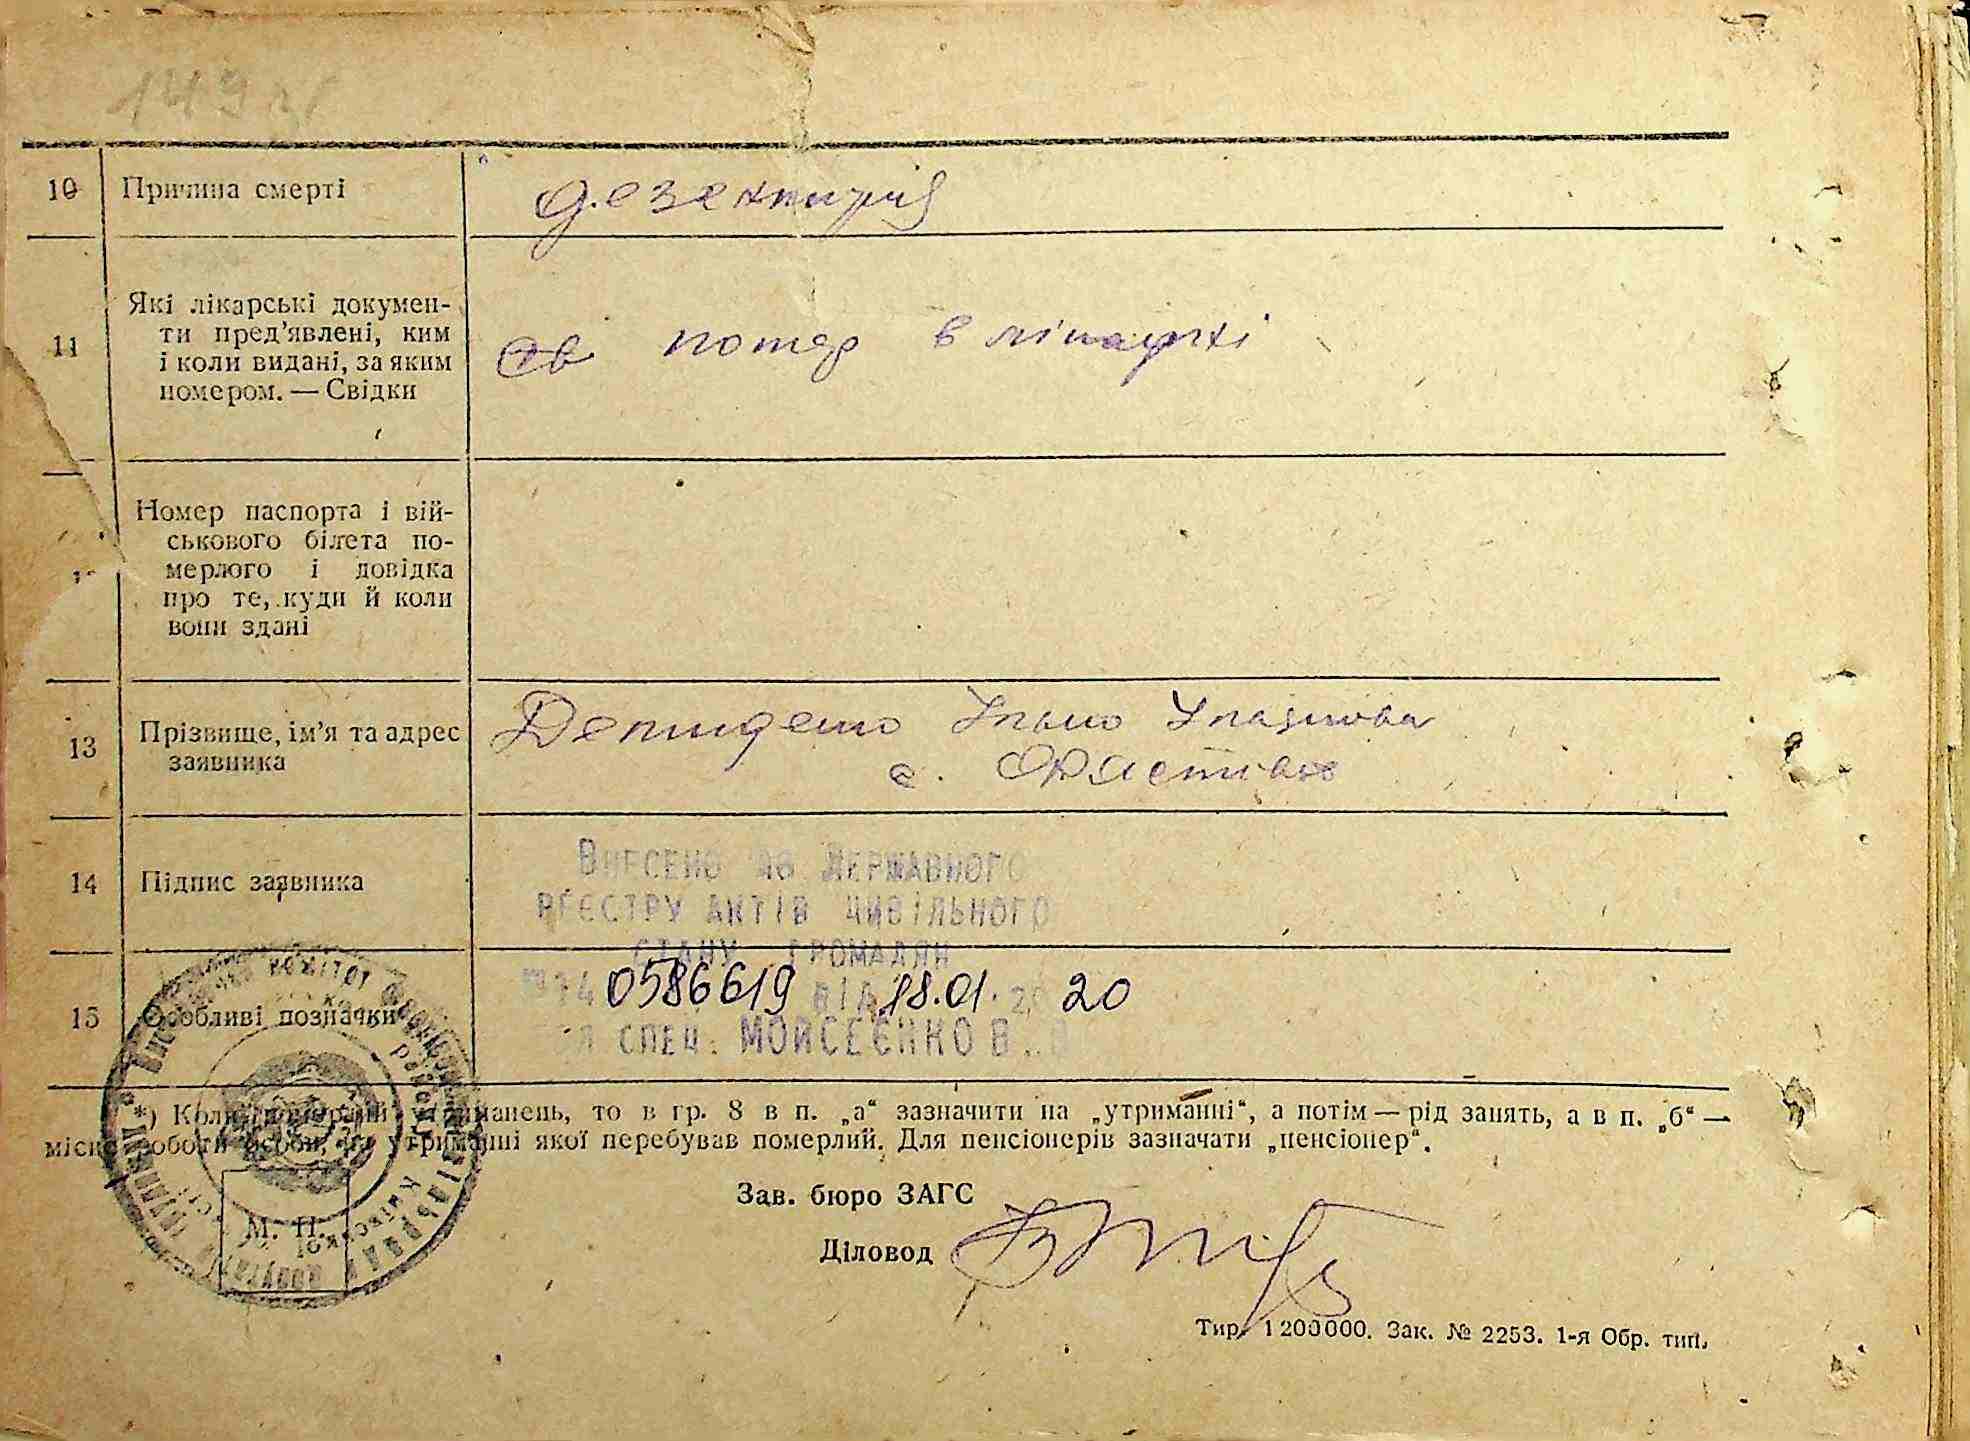 149
10 Причина смерті
дезентирія
11 Які лікарські докумен-
ти пред’явлені, ким
і коли видані, за яким
номером. — Свідки
помер в лікарні
Номер паспорта і вій-
ськового білета по-
мерлого і довідка
про те, куди й коли
вони здані
13 Прізвище, ім’я та адрес
заявника
с.
14 Підпис заявника
Внесено до Державного
реєстру актів цивільного
стану громадян
0586619 від 18.01. 20 20
15 Особливі позначки
спец. Мойсеєнко В.
*) Коли померлий утриманець, то в гр. 8 в п. „а“ зазначити на „утриманні“, а потім — рід занять, а в п. „б“ —
місце роботи особи, на утриманні якої перебував померлий. Для пенсіонерів зазначати „пенсіонер“.
Зав. бюро ЗАГС
М. П.
Діловод
Тир. 1 200 000. Зак. № 2253. 1-я Обр. тип.